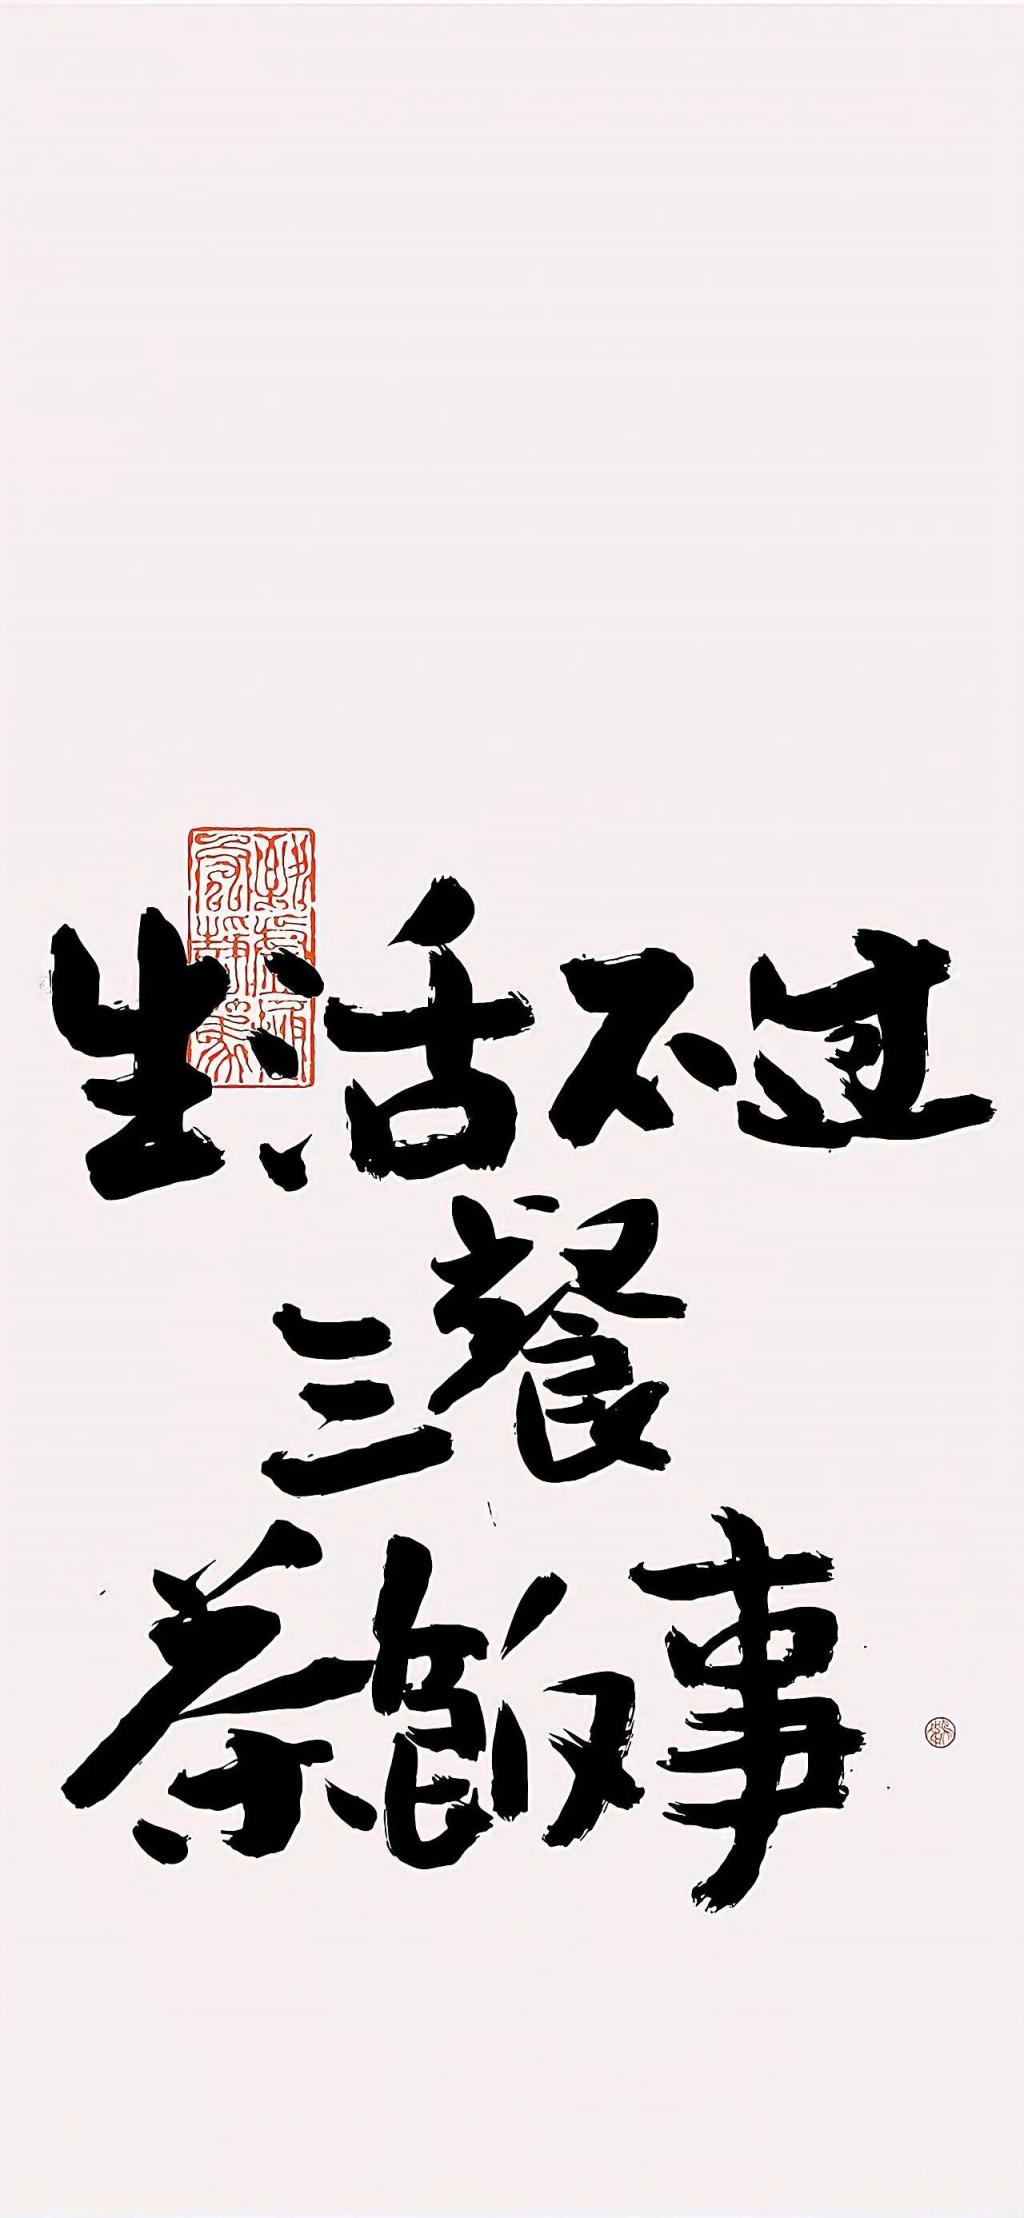 生活不过
三餐
茶飯事